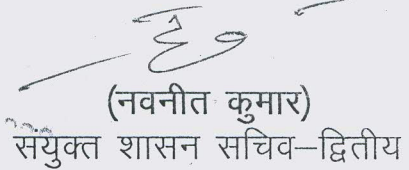 (नवनीत कुमार)
संयुक्त शासन सचिव–द्वितीय